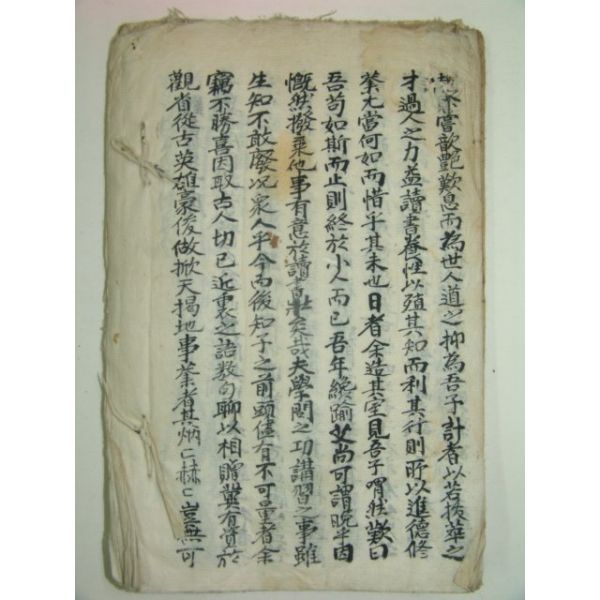 不嘗歆艶歎息而為世人道之抑為吾子計者以若拔萃之
才過人之力益讀書養性以殖其知而利其行則所以進德修
業尤當何如而惜乎其未也日者余造其室見吾子喟然歎曰
吾苟如斯而止則終於小人而已吾年纔踰艾尚可謂晩乎因
慨然撥棄他事有意於讀書壯矣哉夫學問之功講習之事雖
生知不敢廢况衆人乎今而後知子之前頭儘有不可量者余
竊不勝喜因取古人切已近裏之語數句聊以相贈冀有資於
觀省從古英雄豪俊做掀天揭地事業者其炳〻赫〻豈無可